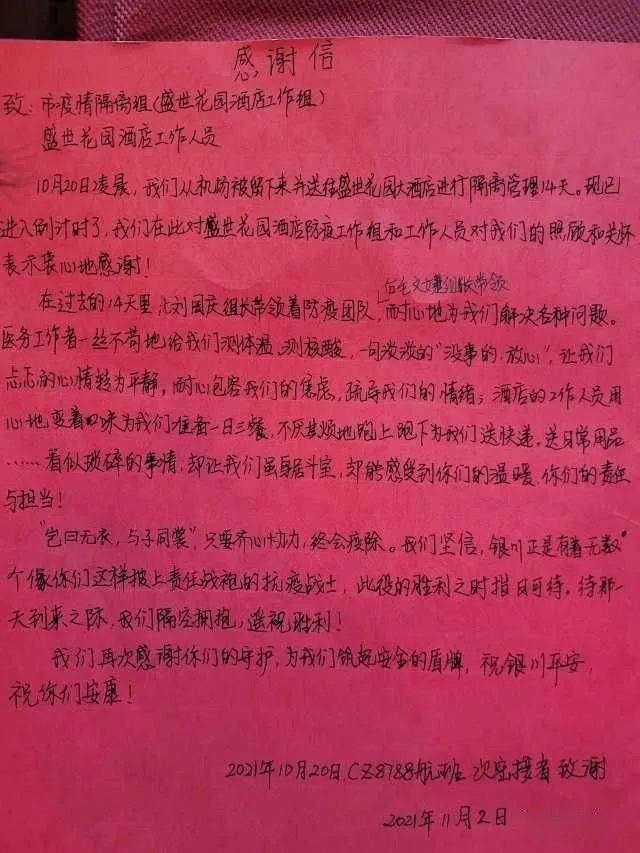 感谢信
致：市疫情隔离组(盛世花园酒店工作组)
盛世花园酒店工作人员
10月20日凌晨，我们从机场被留下来并送往盛世花园大酒店进行隔离管理14天。现已
进入倒计时了，我们在此对盛世花园酒店防疫工作组和工作人员对我们的照顾和关怀
表示衷心地感谢！
组长带领
在过去的14天里，刘国庆组长带领着防疫团队，耐心地为我们解决各种问题。
医务工作者一丝不苟地给我们测体温、测核酸，一句淡淡的“没事的，放心”，让我们
忐忑的心情转为平静。耐心包容我们的焦虑，疏导我们的情绪；酒店的工作人员用
心地变着口味为我们准备一日三餐，不厌其烦地跑上跑下为我们送快递、送日常用品
……看似琐碎的事情，却让我们虽身居斗室，却能感受到你们的温暖、你们的责任
与担当！
“岂曰无衣，与子同裳”，只要齐心协力，终会疫除。我们坚信，银川正是有着无数
个像你们这样披上责任战袍的抗疫战士，此役的胜利之时指日可待。待那一
天到来之际，我们隔空拥抱，遥祝胜利！
我们再次感谢你们的守护，为我们筑起安全的盾牌，祝银川平安，
祝你们安康！
2021年10月20日，CZ8788航班 次密接者 致谢
2021年11月2日